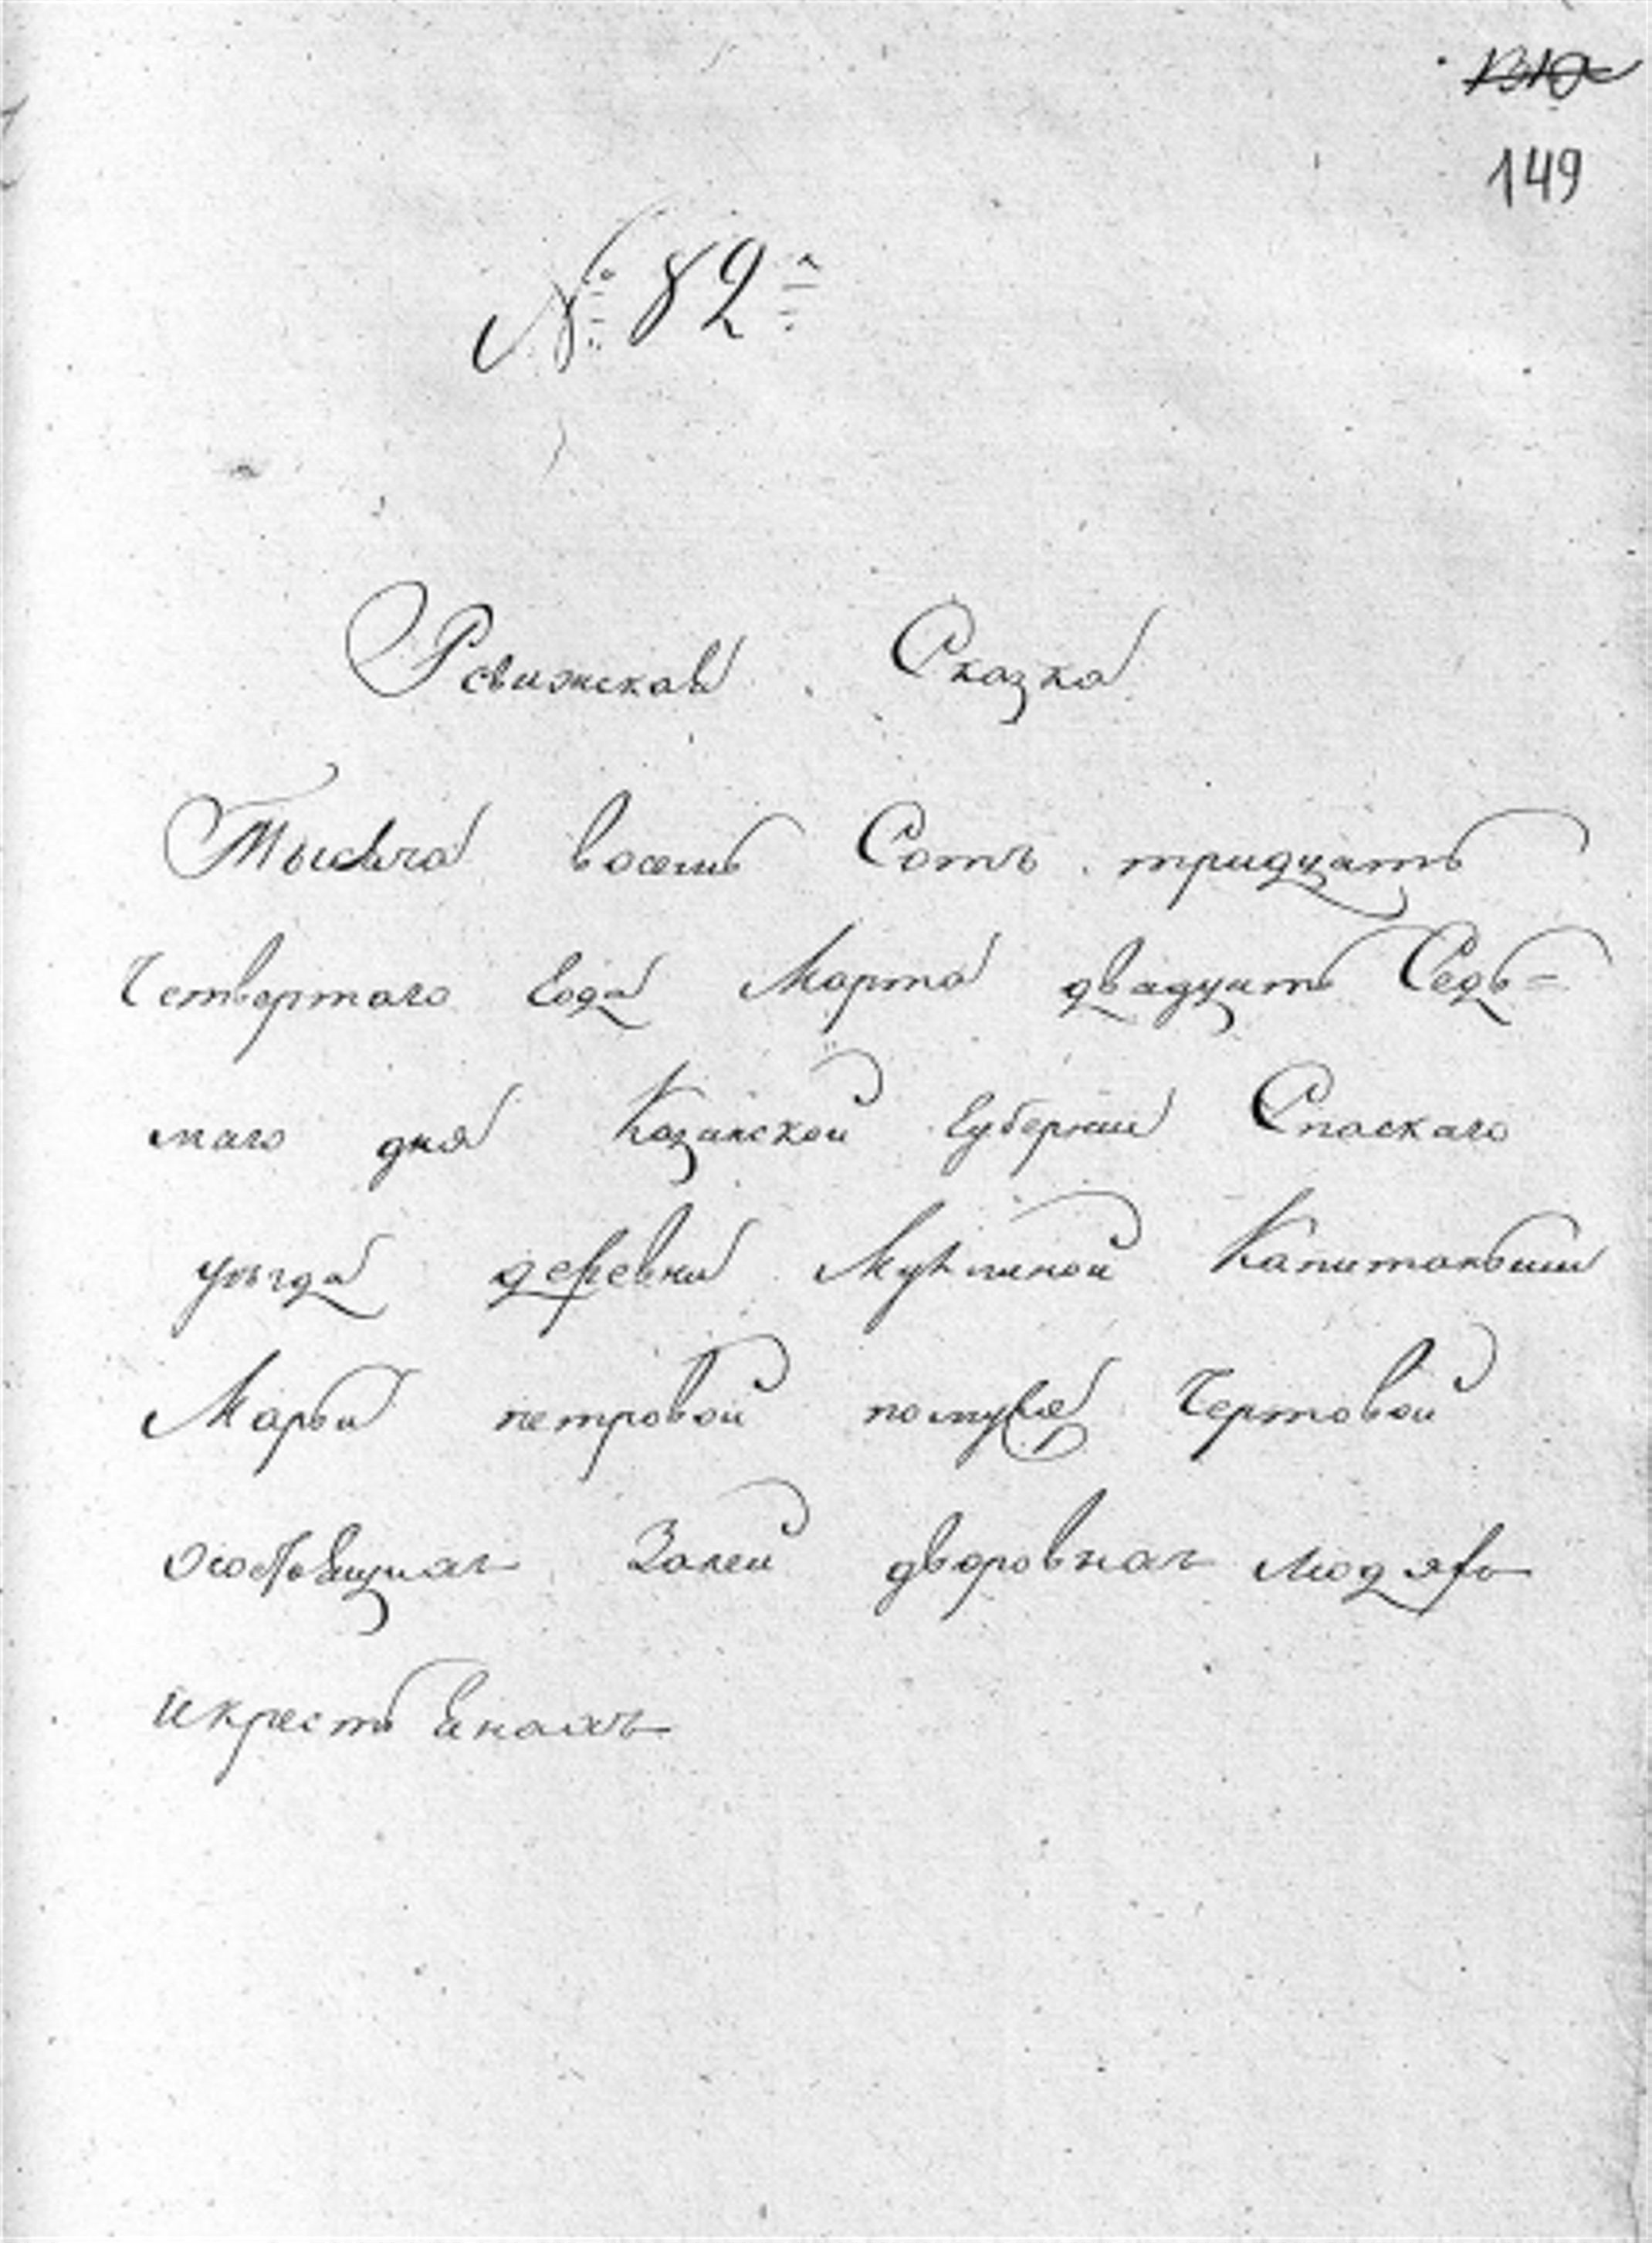 149
№ 82
Ревижская Сказка
Тысяча восемь Сотъ тридцать
Четвертаго Года Марта двадцать Седь=
маго дня Казанской Губернии Спаскаго
уезда деревни Капитанши
Марьи петровой по муже Чертовой
о состоящихъ За ней дворовыхъ людяхъ
и крестьянахъ